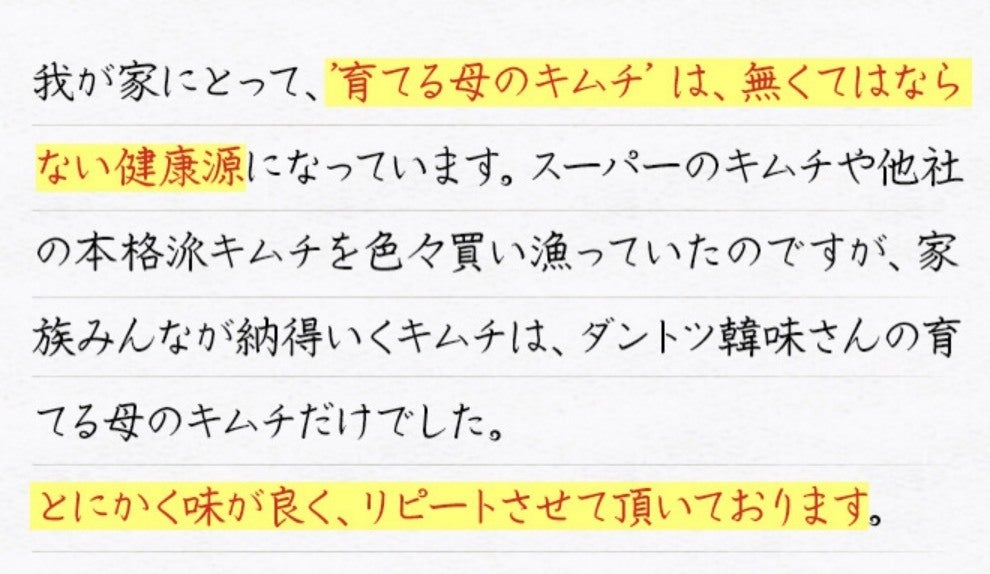 我が家にとって、’育てる母のキムチ’は、無くてはなら
ない健康源になっています。スーパーのキムチや他社
の本格派キムチを色々買い漁っていたのですが、家
族みんなが納得いくキムチは、ダントツ韓味さんの育
てる母のキムチだけでした。
とにかく味が良く、リピートさせて頂いております。